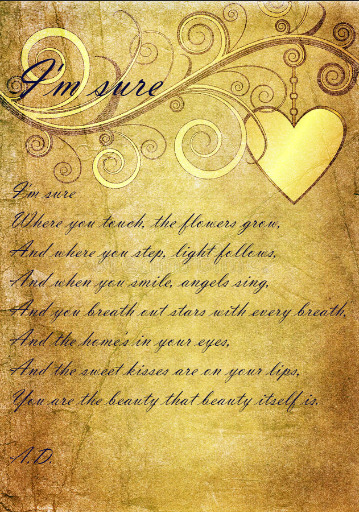 I'm sure
I'm sure
Where you touch, the flowers grow,
And where you step, light follows,
And when you smile, angels sing,
And you breath out stars with every breath,
And the home's in your eyes,
And the sweet kisses are on your lips,
You are the beauty that beauty itself is.
A.D.